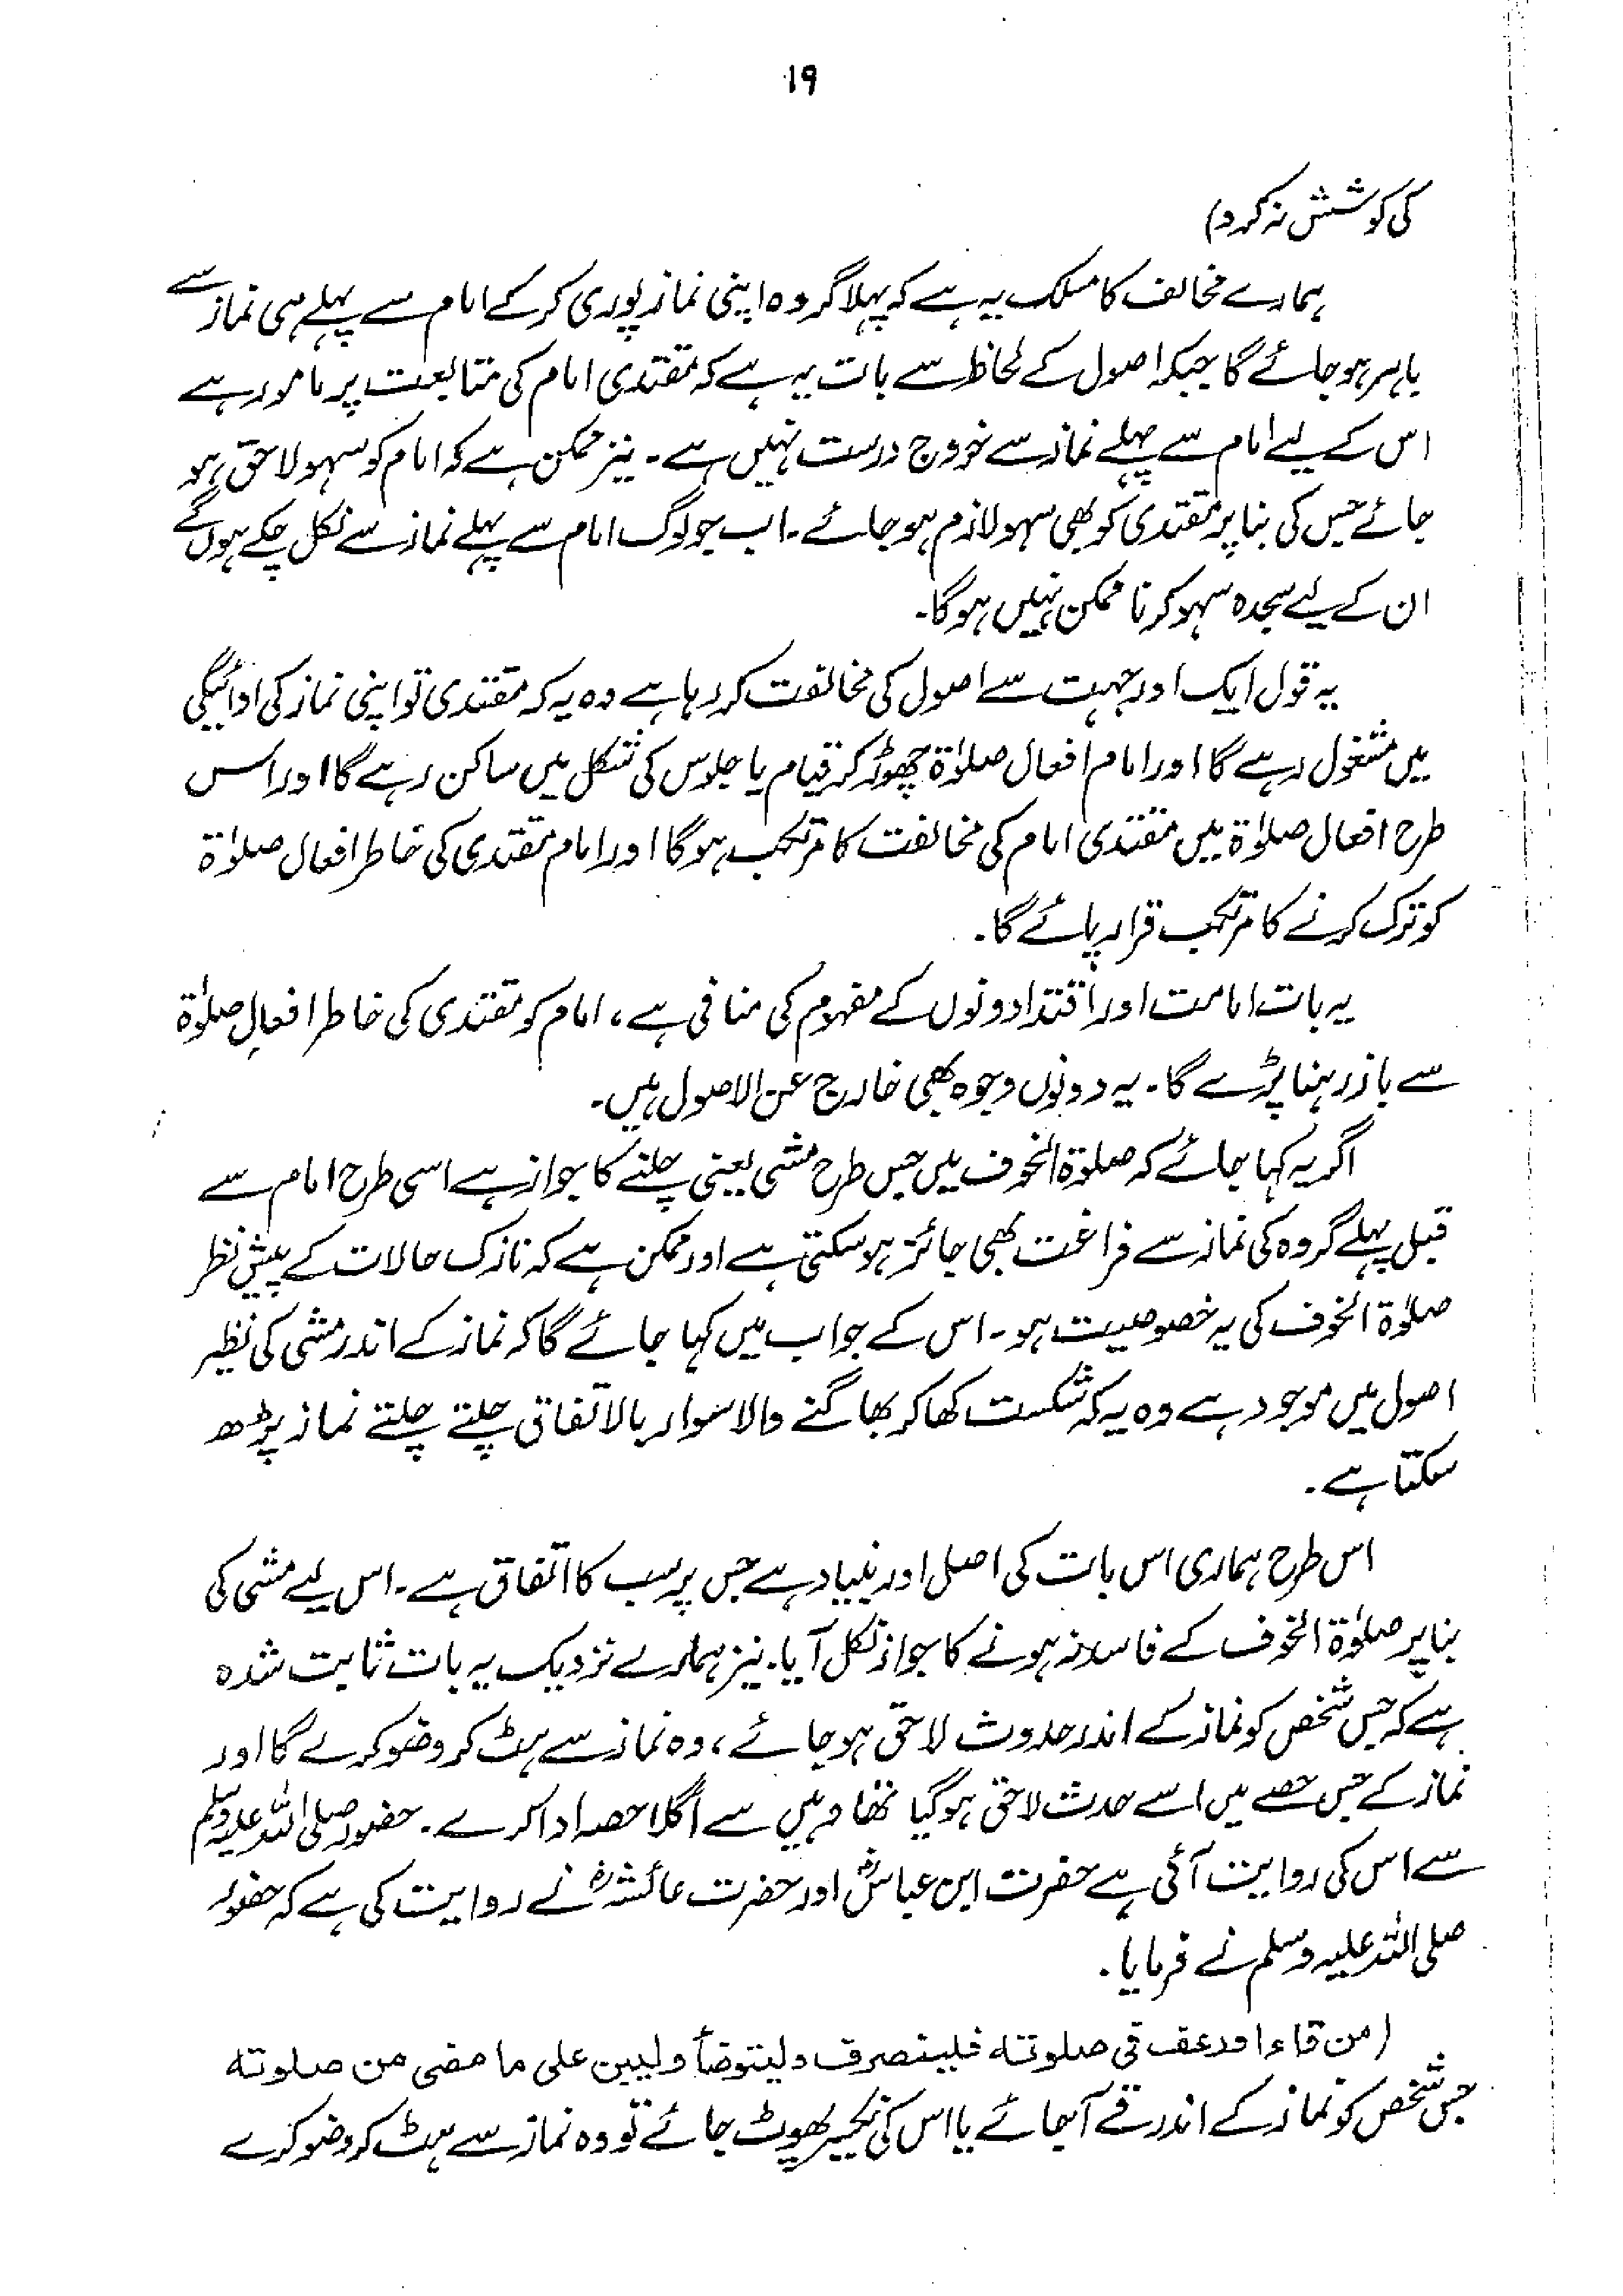 ۱۹
کی کوشش نہ کرو)
ہمارے مخالف کا مسلک یہ ہے کہ پہلا گروہ اپنی نماز پوری کر کے امام سے پہلے ہی نماز سے
باہر ہو جائے گا جبکہ اصول کے لحاظ سے بات یہ ہے کہ مقتدی امام کی متابعت پر مامور ہے
اس کے لیے امام سے پہلے نماز سے خروج درست نہیں ہے۔ نیز ممکن ہے کہ امام کو سہو لاحق ہو
جائے جس کی بنا پر مقتدی کو بھی سہو لازم ہو جائے۔ اب جو لوگ امام سے پہلے نماز سے نکل چکے ہوں گے
ان کے لیے سجدہ سہو کرنا ممکن نہیں ہوگا۔
یہ قول ایک اور جہت سے اصول کی مخالفت کر رہا ہے وہ یہ کہ مقتدی تو اپنی نماز کی ادائیگی
میں مشغول رہے گا اور امام افعال صلوٰۃ چھوڑ کر قیام یا جلوس کی شکل میں ساکن رہے گا اور اس
طرح افعال صلوٰۃ میں مقتدی امام کی مخالفت کا مرتکب ہوگا اور امام مقتدی کی خاطر افعال صلوٰۃ
کو ترک کرنے کا مرتکب قرار پائے گا۔
یہ بات امامت اور اقتدا دونوں کے مفہوم کی منافی ہے، امام کو مقتدی کی خاطر افعالِ صلوٰۃ
سے باز رہنا پڑے گا۔ یہ دونوں وجوہ بھی خارج عن الاصول ہیں۔
اگر یہ کہا جائے کہ صلوٰۃ الخوف میں جس طرح مشی یعنی چلنے کا جواز ہے اسی طرح امام سے
قبل پہلے گروہ کی نماز سے فراغت بھی جائز ہو سکتی ہے اور ممکن ہے کہ نازک حالات کے پیش نظر
صلوٰۃ الخوف کی یہ خصوصیت ہو۔ اس کے جواب میں کہا جائے گا کہ نماز کے اندر مشی کی نظیر
اصول میں موجود ہے وہ یہ کہ شکست کھا کر بھاگنے والا سوار بالاتفاق چلتے چلتے نماز پڑھ
سکتا ہے۔
اس طرح ہماری اس بات کی اصل اور بنیاد ہے جس پر سب کا اتفاق ہے۔ اس لیے مشی کی
بنا پر صلوٰۃ الخوف کے فاسد نہ ہونے کا جواز نکل آیا۔ نیز ہمارے نزدیک یہ بات ثابت شدہ
ہے کہ جس شخص کو نماز کے اندر حدوث لاحق ہو جائے، وہ نماز سے ہٹ کر وضو کرے گا اور
نماز کے جس حصے میں اسے حدث لاحق ہو گیا تھا وہیں سے اگلا حصہ ادا کرے۔ حضور صلی اللہ علیہ وسلم
سے اس کی روایت آئی ہے حضرت ابن عباسؓ اور حضرت عائشہؓ نے روایت کی ہے کہ حضور
صلی اللہ علیہ وسلم نے فرمایا۔
(من قاء او رعف فی صلوتہ فلینصرف ولیتوضأ ولیبن علی ما مضی من صلوتہ
جس شخص کو نماز کے اندر قے آ جائے یا اس کی نکسیر پھوٹ جائے تو وہ نماز سے ہٹ کر وضو کرے